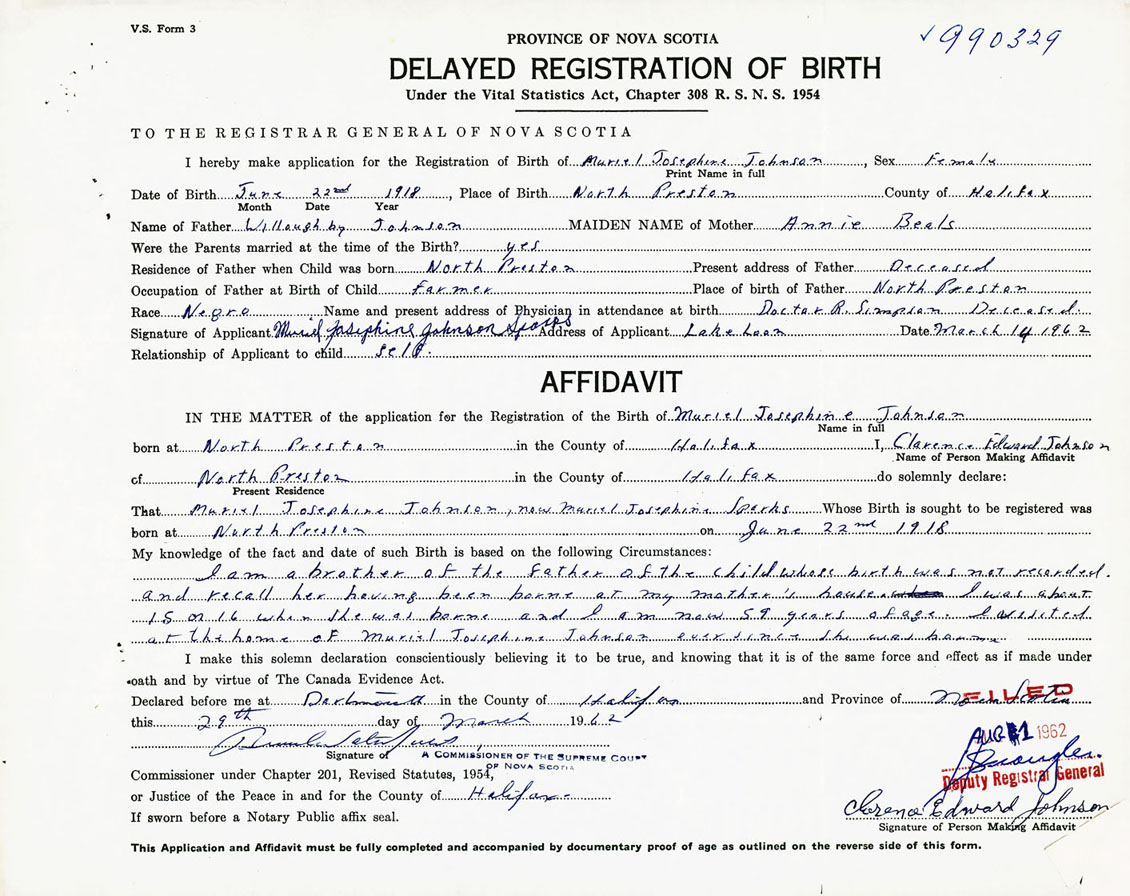 V.S. Form 3
990329
PROVINCE OF NOVA SCOTIA
DELAYED REGISTRATION OF BIRTH
Under the Vital Statistics Act, Chapter 308 R. S. N. S. 1954
TO THE REGISTRAR GENERAL OF NOVA SCOTIA
I hereby make application for the Registration of Birth of Muriel Josephine Johnson, Sex Female
Print Name in full
Date of Birth June 22nd 1918, Place of Birth North Preston County of Halifax
Month Date Year
Name of Father Willoughby Johnson MAIDEN NAME of Mother Annie Beals
Were the Parents married at the time of the Birth? yes
Residence of Father when Child was born North Preston Present address of Father Deceased
Occupation of Father at Birth of Child Farmer Place of birth of Father North Preston
Race Negro Name and present address of Physician in attendance at birth Doctor R. Simpson Deceased
Signature of Applicant Muriel Josephine Johnson Sparks Address of Applicant Lake Loon Date March 14 1962
Relationship of Applicant to child Self.
AFFIDAVIT
IN THE MATTER of the application for the Registration of the Birth of Muriel Josephine Johnson
Name in full
born at North Preston in the County of Halifax I, Clarence Edward Johnson
Name of Person Making Affidavit
of North Preston in the County of Halifax do solemnly declare:
Present Residence
That Muriel Josephine Johnson, now Muriel Josephine Sparks Whose Birth is sought to be registered was
born at North Preston on June 22nd 1918
My knowledge of the fact and date of such Birth is based on the following Circumstances:
I am a brother of the father of the child whose birth was not recorded.
and recall her having been borne at my mother's house I was about
15 or 16 when she was borne and I am now 59 years of age. I visited
at the home of Muriel Josephine Johnson ever since she was borne
I make this solemn declaration conscientiously believing it to be true, and knowing that it is of the same force and effect as if made under
oath and by virtue of The Canada Evidence Act.
Declared before me at Dartmouth in the County of Halifax and Province of Nova Scotia
FILED
this 29th day of March 1962
AUG 1962
Signature of A COMMISSIONER OF THE SUPREME COURT
OF NOVA SCOTIA
Commissioner under Chapter 201, Revised Statutes, 1954,
Deputy Registrar General
or Justice of the Peace in and for the County of Halifax
Clarence Edward Johnson
If sworn before a Notary Public affix seal.
Signature of Person Making Affidavit
This Application and Affidavit must be fully completed and accompanied by documentary proof of age as outlined on the reverse side of this form.